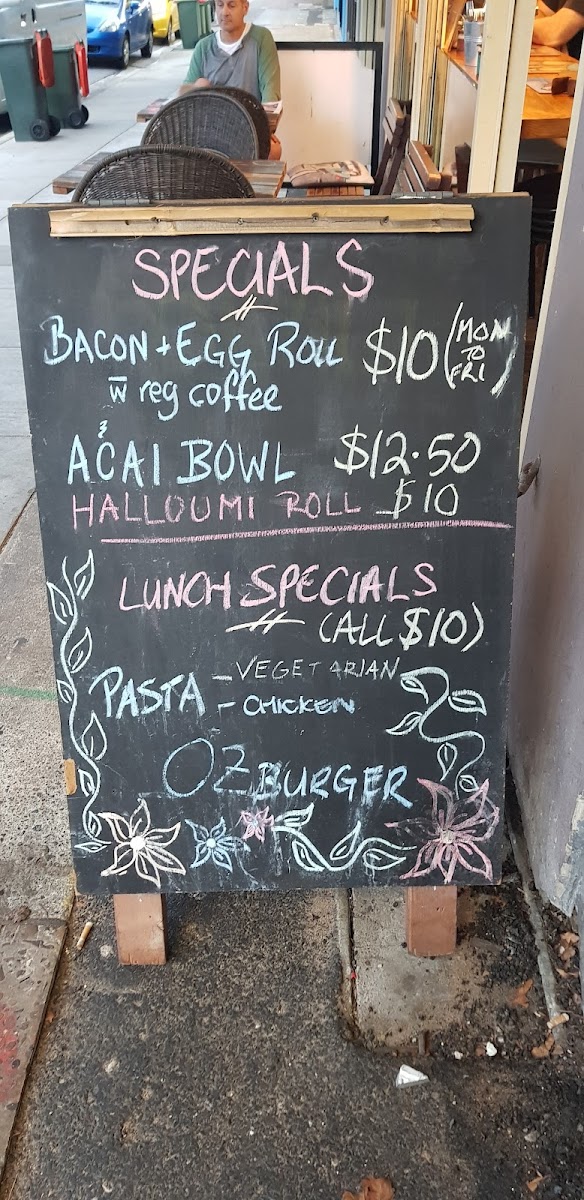 SPECIALS
BACON + EGG ROLL $10 (MON TO FRI)
w̅ reg coffee
&
ACAI BOWL $12.50
HALLOUMI ROLL $10
LUNCH SPECIALS
(ALL $10)
PASTA - VEGETARIAN
- CHICKEN
OZ BURGER